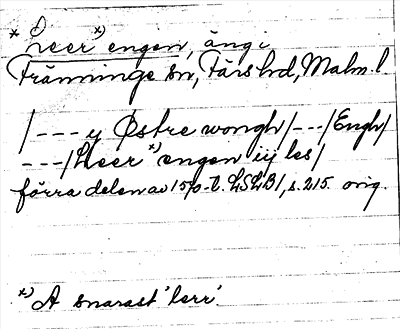 *heer*) engen, äng i
Tränninge sn, Färs hd, Malm. l.
/--- y Østre wongh/---/Engh/
---/Heer*) engen iij les/
förra delen av 1570-t. LSLB1, s. 215. orig.
*) A snarast 'lerr'.